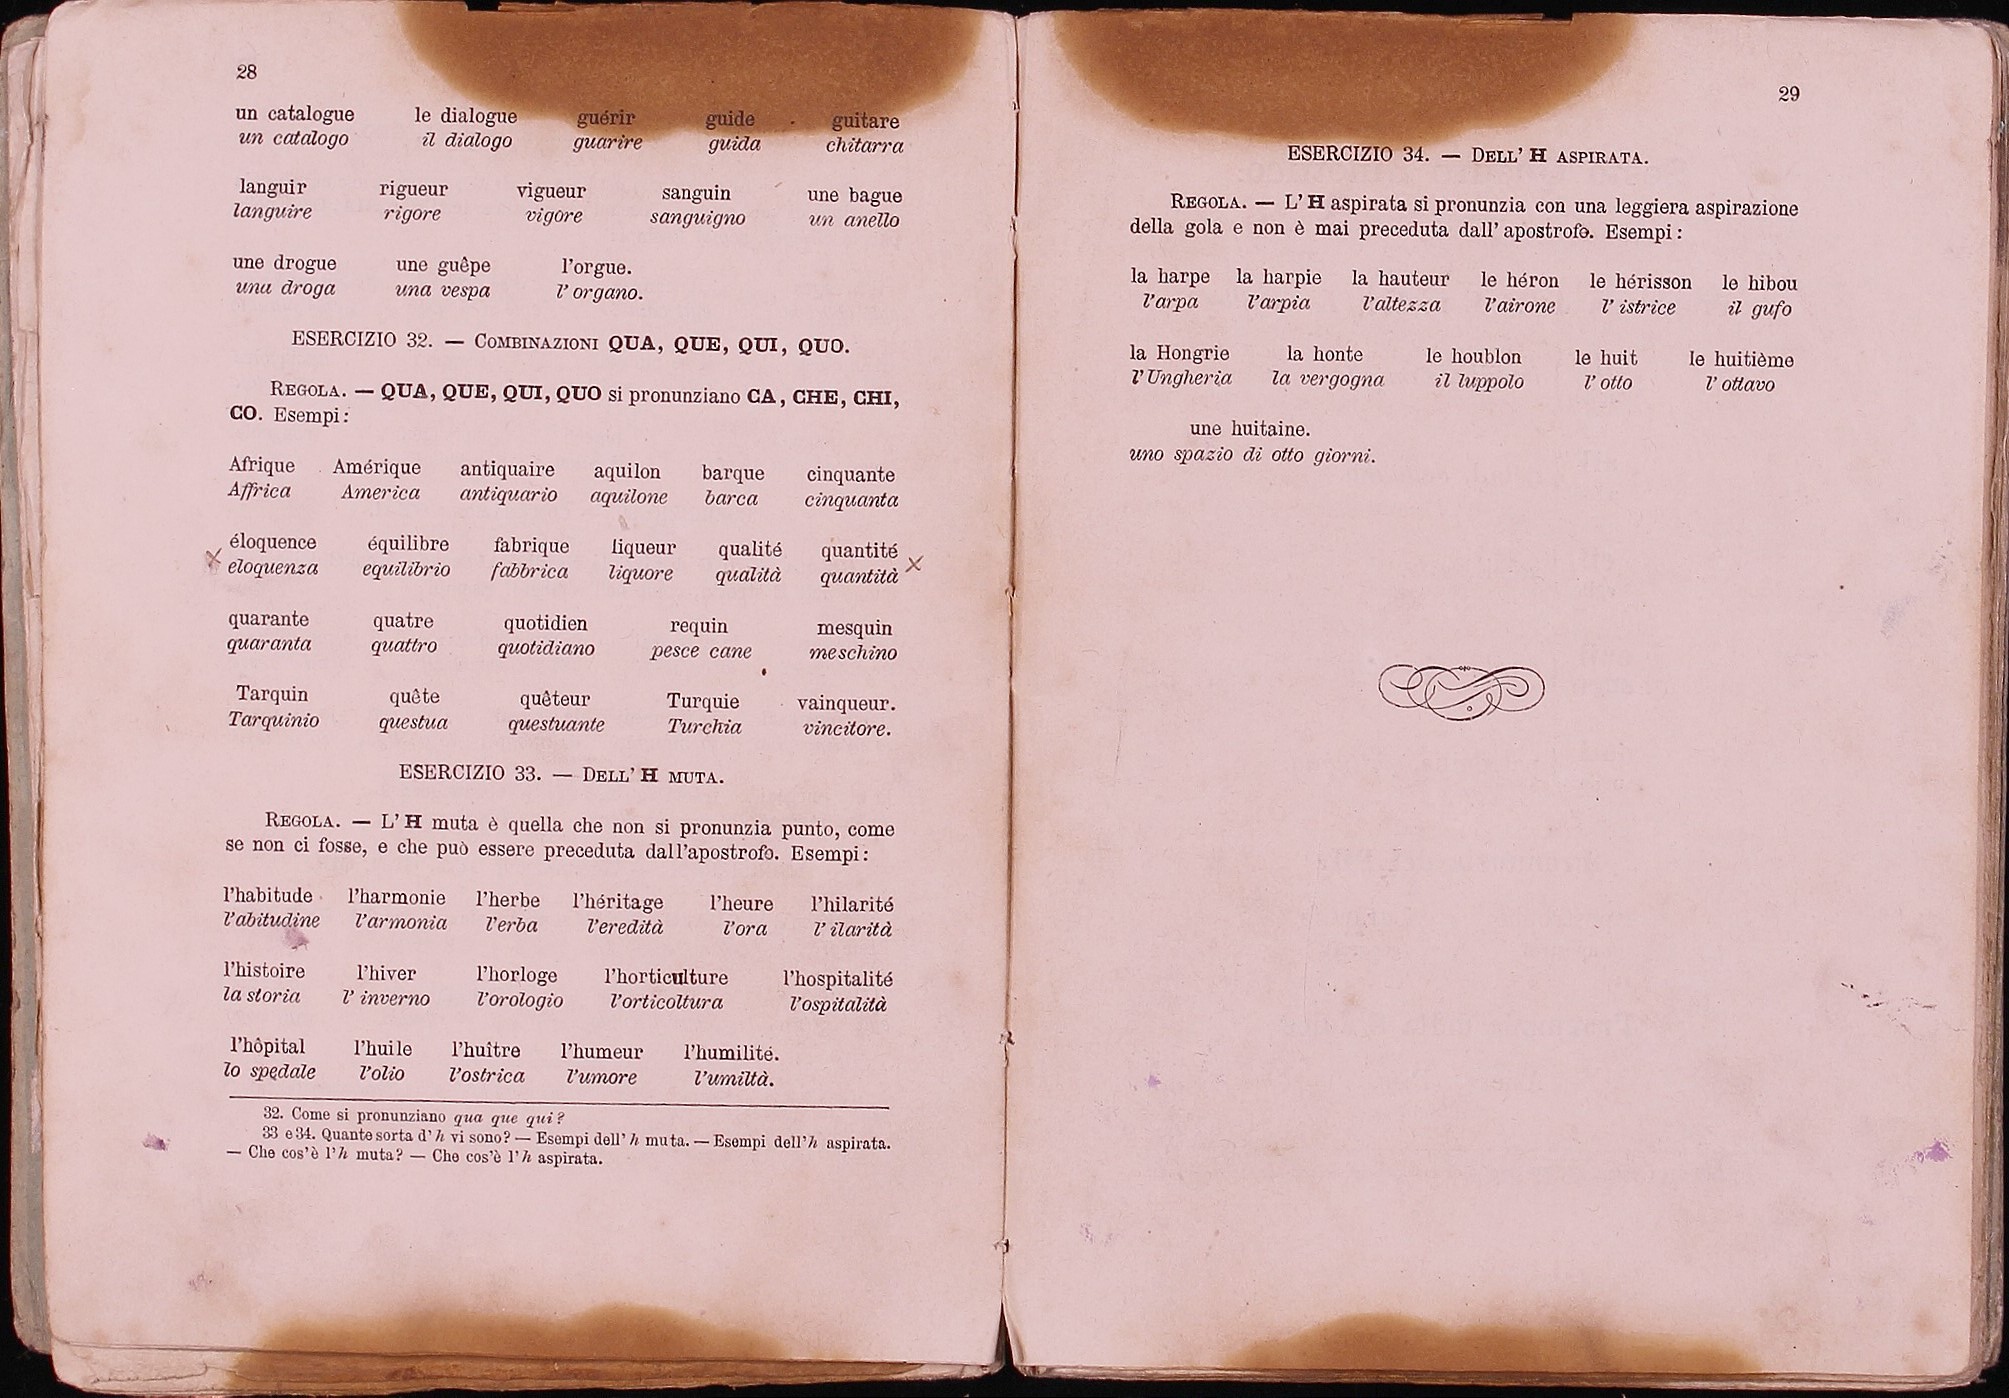 28
un catalogue le dialogue guérir guide guitare
un catalogo il dialogo guarire guida chitarra
languir rigueur vigueur sanguin une bague
languire rigore vigore sanguigno un anello
une drogue une guêpe l'orgue.
una droga una vespa l' organo.
ESERCIZIO 32. — COMBINAZIONI QUA, QUE, QUI, QUO.
REGOLA. — QUA, QUE, QUI, QUO si pronunziano CA, CHE, CHI,
CO. Esempi:
Afrique Amérique antiquaire aquilon barque cinquante
Affrica America antiquario aquilone barca cinquanta
éloquence équilibre fabrique liqueur qualité quantité
eloquenza equilibrio fabbrica liquore qualità quantità
quarante quatre quotidien requin mesquin
quaranta quattro quotidiano pesce cane meschino
Tarquin quête quêteur Turquie vainqueur.
Tarquinio questua questuante Turchia vincitore.
ESERCIZIO 33. — DELL' H MUTA.
REGOLA. — L' H muta è quella che non si pronunzia punto, come
se non ci fosse, e che può essere preceduta dall'apostrofo. Esempi:
l'habitude l'harmonie l'herbe l'héritage l'heure l'hilarité
l'abitudine l'armonia l'erba l'eredità l'ora l' ilarità
l'histoire l'hiver l'horloge l'horticulture l'hospitalité
la storia l' inverno l'orologio l'orticoltura l'ospitalità
l'hôpital l'huile l'huître l'humeur l'humilité.
lo spedale l'olio l'ostrica l'umore l'umiltà.
32. Come si pronunziano qua que qui?
33 e 34. Quante sorta d' h vi sono? — Esempi dell' h muta. — Esempi dell'h aspirata.
— Che cos'è l'h muta? — Che cos'è l'h aspirata.
29
ESERCIZIO 34. — DELL' H ASPIRATA.
REGOLA. — L' H aspirata si pronunzia con una leggiera aspirazione
della gola e non è mai preceduta dall' apostrofo. Esempi:
la harpe la harpie la hauteur le héron le hérisson le hibou
l'arpa l'arpia l'altezza l'airone l' istrice il gufo
la Hongrie la honte le houblon le huit le huitième
l'Ungheria la vergogna il luppolo l' otto l' ottavo
une huitaine.
uno spazio di otto giorni.